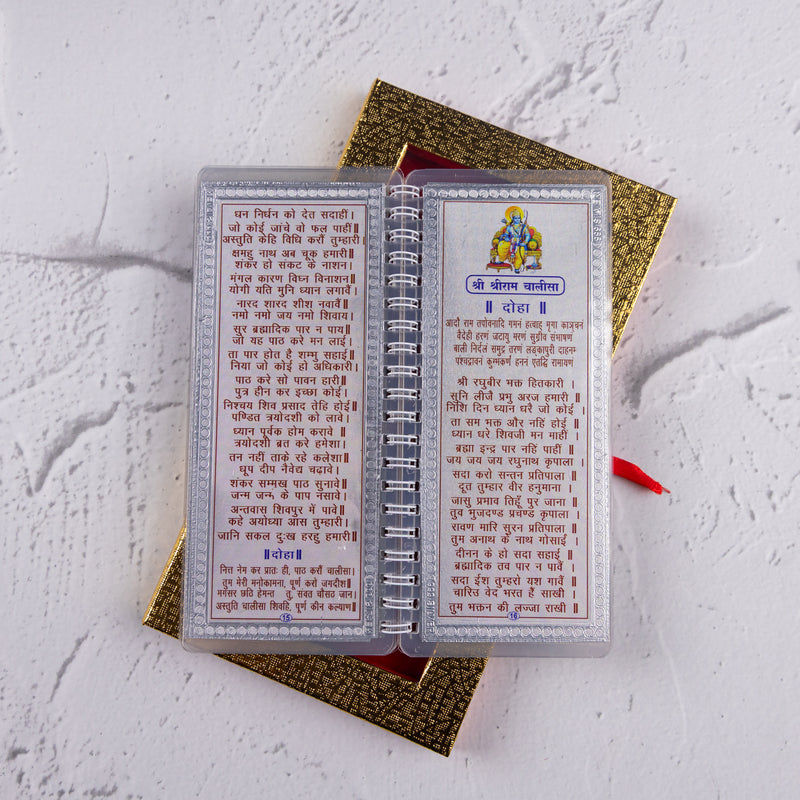 धन निर्धन को देत सदाहीं।
जो कोई जांचे वो फल पाहीं॥
अस्तुति केहि विधि करौं तुम्हारी।
क्षमहु नाथ अब चूक हमारी॥
शंकर हो संकट के नाशन।
मंगल कारण विघ्न विनाशन॥
योगी यति मुनि ध्यान लगावैं।
नारद शारद शीश नवावैं॥
नमो नमो जय नमो शिवाय।
सुर ब्रह्मादिक पार न पाय॥
जो यह पाठ करे मन लाई।
ता पार होत है शम्भु सहाई॥
निया जो कोई हो अधिकारी।
पाठ करे सो पावन हारी॥
पुत्र हीन कर इच्छा कोई।
निश्चय शिव प्रसाद तेहि होई॥
पण्डित त्रयोदशी को लावे।
ध्यान पूर्वक होम करावे॥
त्रयोदशी ब्रत करे हमेशा।
तन नहीं ताके रहे कलेशा॥
धूप दीप नैवेद्य चढावे।
शंकर सम्मख पाठ सुनावे॥
जन्म जन्म के पाप नसावे।
अन्तवास शिवपुर में पावे॥
कहे अयोध्या आस तुम्हारी।
जानि सकल दुःख हरहु हमारी॥
॥दोहा॥
नित्त नेम कर प्रातः ही, पाठ करौं चालीसा।
तुम मेरी मनोकामना, पूर्ण करो जगदीश॥
मगसर छठि हेमन्त तु, संवत चौसठ जान।
अस्तुति चालीसा शिवहि, पूर्ण कीन कल्याण॥
15
श्री श्रीराम चालीसा
॥ दोहा ॥
आदौ राम तपोवनादि गमनं हत्वाह् मृगा काञ्चनं
वैदेही हरणं जटायु मरणं सुग्रीव संभाषणं
बाली निर्दलं समुद्र तरणं लङ्कापुरी दाहनम्
पश्चद्रावनं कुम्भकर्णं हननं एतद्धि रामायणं
श्री रघुबीर भक्त हितकारी ।
सुनि लीजै प्रभु अरज हमारी ॥
निशि दिन ध्यान धरै जो कोई ।
ता सम भक्त और नहिं होई ॥
ध्यान धरे शिवजी मन माहीं ।
ब्रह्मा इन्द्र पार नहिं पाहीं ॥
जय जय जय रघुनाथ कृपाला ।
सदा करो सन्तन प्रतिपाला ॥
दूत तुम्हार वीर हनुमाना ।
जासु प्रभाव तिहूँ पुर जाना ॥
तुव भुजदण्ड प्रचण्ड कृपाला ।
रावण मारि सुरन प्रतिपाला ॥
तुम अनाथ के नाथ गोसाईं ।
दीनन के हो सदा सहाई ॥
ब्रह्मादिक तव पार न पावैं ।
सदा ईश तुम्हरो यश गावैं ॥
चारिउ वेद भरत हैं साखी ।
तुम भक्तन की लज्जा राखी ॥
16